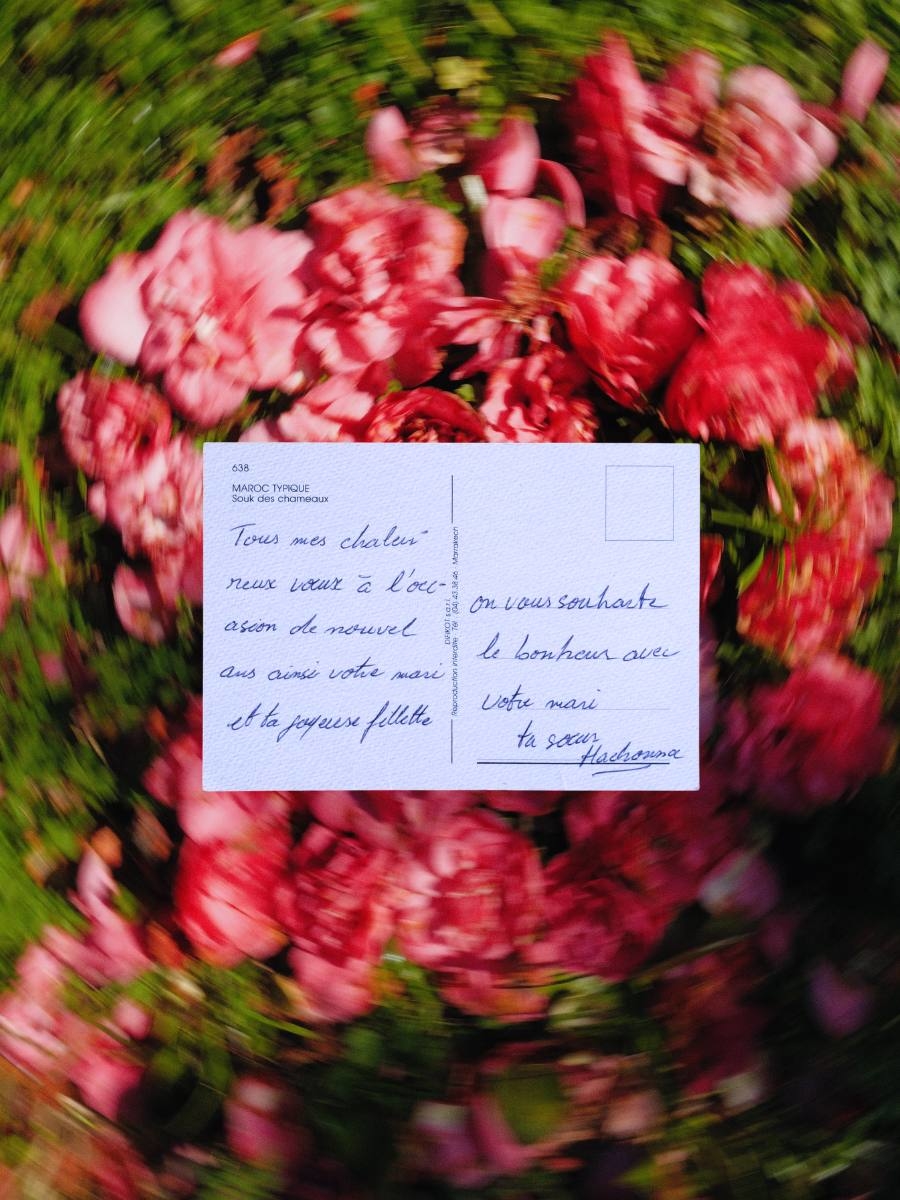 638
MAROC TYPIQUE
Souk des chameaux
Tous mes chaleu
reux vœux à l'occ-
asion de nouvel
ans ainsi votre mari
et ta joyeuse fillette
DIFIKOT s.a.r.l.
Reproduction interdite - Tél : (04) 43 38 46 - Marrakech
on vous souhaite
le bonheur avec
votre mari
ta sœur